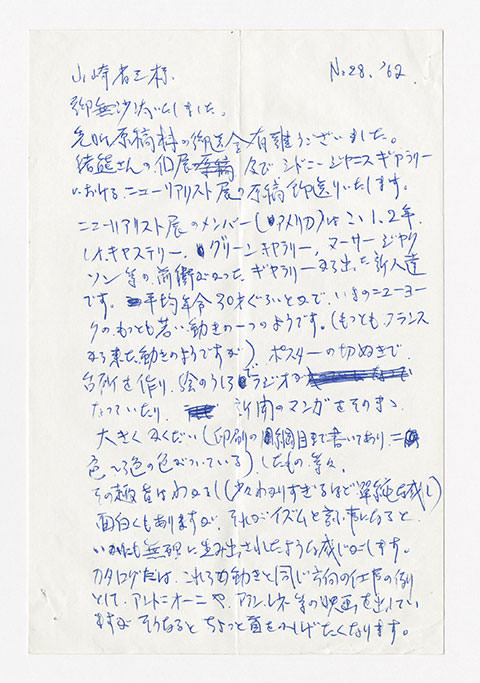 山崎省三様. N. 28. '62
御無沙汰いたしました。
先般原稿料の御送金有難うございました。
猪熊さんの個展原稿及びシドニー・ジャニスギャラリー
における、ニューリアリスト展の原稿御送りいたします。
ニューリアリスト展のメンバー(アメリカ)はここ1、2年、
レオ.キャステリー、グリーンギャラリー、マーサージャク
ソン等の前衛がかったギャラリーから出た新人達
です。平均年令30才ぐらいとかで、いまのニューヨー
クのもっとも若い動きの一つのようです。(もっともフランス
から来た動きのようですが) ポスターの切ぬきで
台所を作り、絵のうしろでラジオが
なっていたり、新聞のマンガをそのまゝ
大きくかくだい(印刷の網目まで書いてあり、二
色〜3色の色がついている)したもの、等々、
その趣旨はわかるし(少々わかりすぎるほど単純な感じ)
面白くもありますが、それがイズムと言う事になると
いかにも無理に生み出されたような感じがします。
カタログでは、これらの動きと同じ方向の仕事の例
として、アントニオーニや、アラン.レネ等の映画を出してい
ますが そうなるとちょっと首をかしげたくなります。